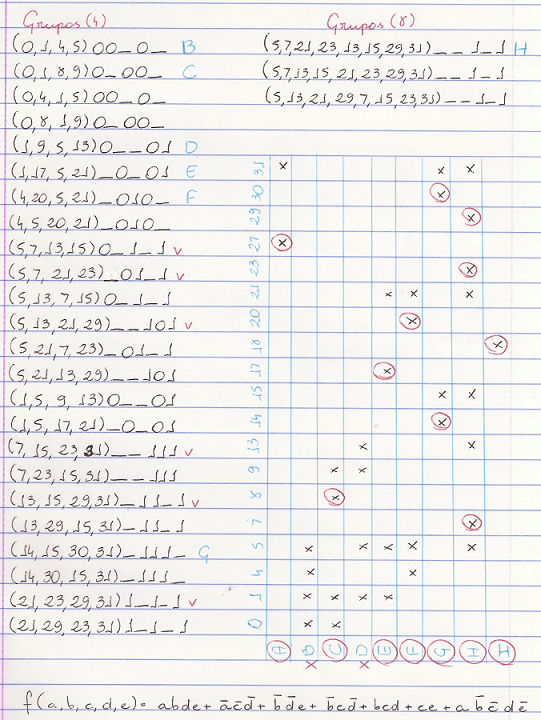 Grupos (4)
(0,1,4,5) 00_0_ B
(0,1,8,9) 0_00_ C
(0,4,1,5) 00_0_
(0,8,1,9) 0_00_
(1,9,5,13) 0__01 D
(1,17,5,21) _0_01 E
(4,20,5,21) _010_ F
(4,5,20,21) _010_
(5,7,13,15) 0_1_1 v
(5,7,21,23) _01_1 v
(5,13,7,15) 0_1_1
(5,13,21,29) __101 v
(5,21,7,23) _01_1
(5,21,13,29) __101
(1,5,9,13) 0__01
(1,5,17,21) _0_01
(7,15,23,31) __111 v
(7,23,15,31) __111
(13,15,29,31) _11_1 v
(13,29,15,31) _11_1
(14,15,30,31) _111_ G
(14,30,15,31) _111_
(21,23,29,31) 1_1_1 v
(21,29,23,31) 1_1_1
Grupos (8)
(5,7,21,23,13,15,29,31) __1_1 H
(5,7,13,15,21,23,29,31) __1_1
(5,13,21,29,7,15,23,31) __1_1
31 x x x
30 x
29 x
27 x
23 x
21 x x x
20 x
18 x
17 x
15 x x
14 x
13 x x
9 x x
8 x
7 x
5 x x x x x
4 x x
1 x x x x
0 x x
A B C D E F G H I
x x
f(a,b,c,d,e)= abde+ a̅c̅d̅+ b̅d̅e+ b̅cd̅+bcd+ce+ab̅c̅de̅